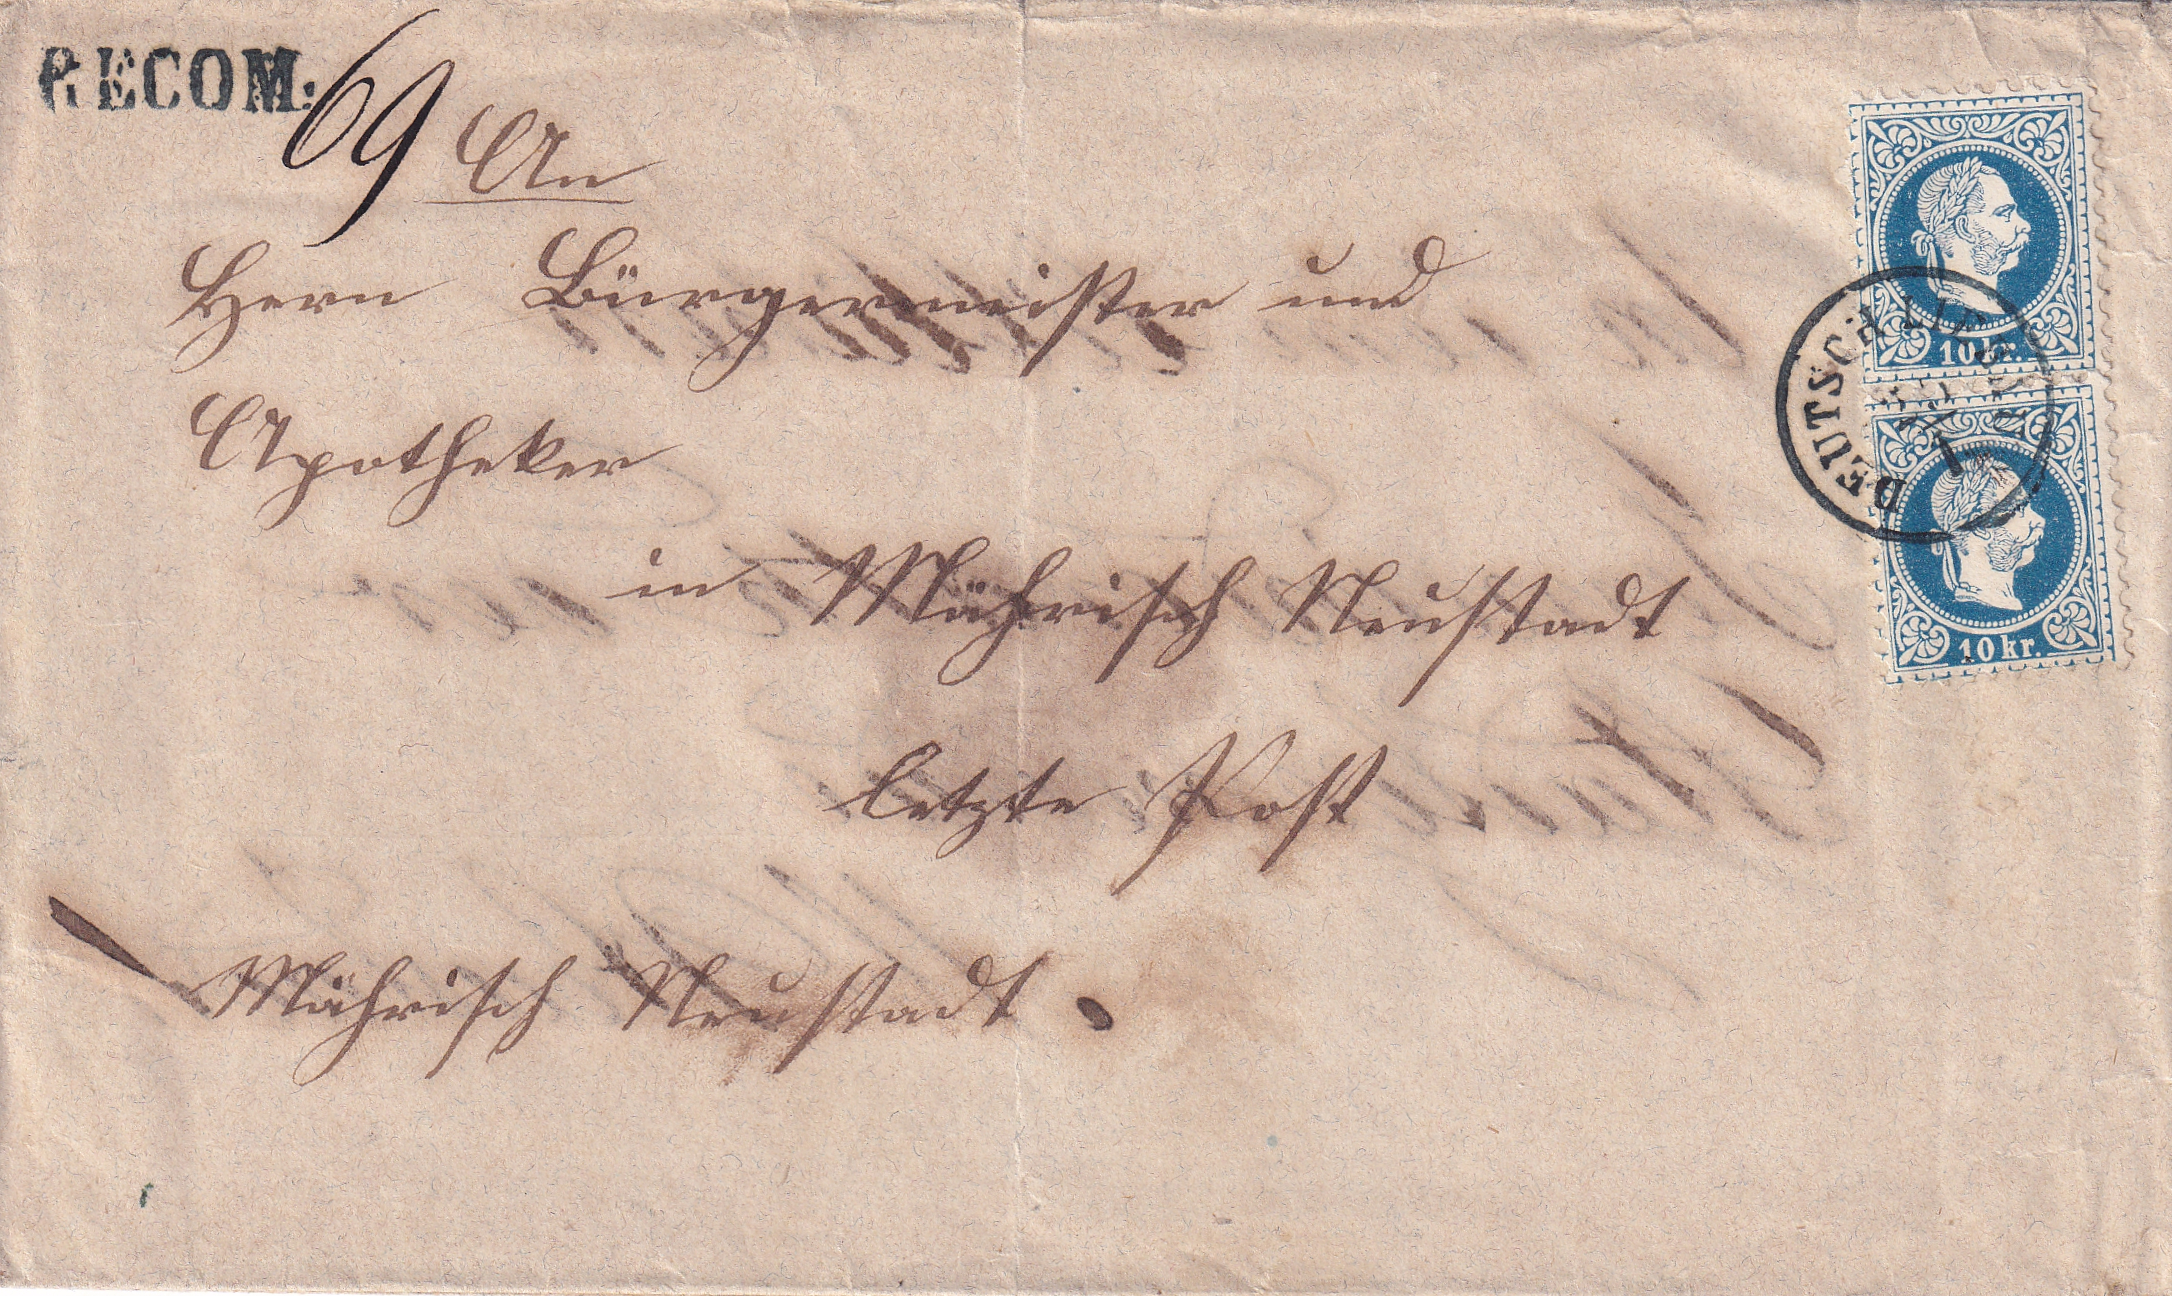 RECOM:
69
An
Herrn Bürgermeister und
Apotheker
in Mährisch Neustadt
letzte Post
Mährisch Neustadt.
10 kr.
10 kr.